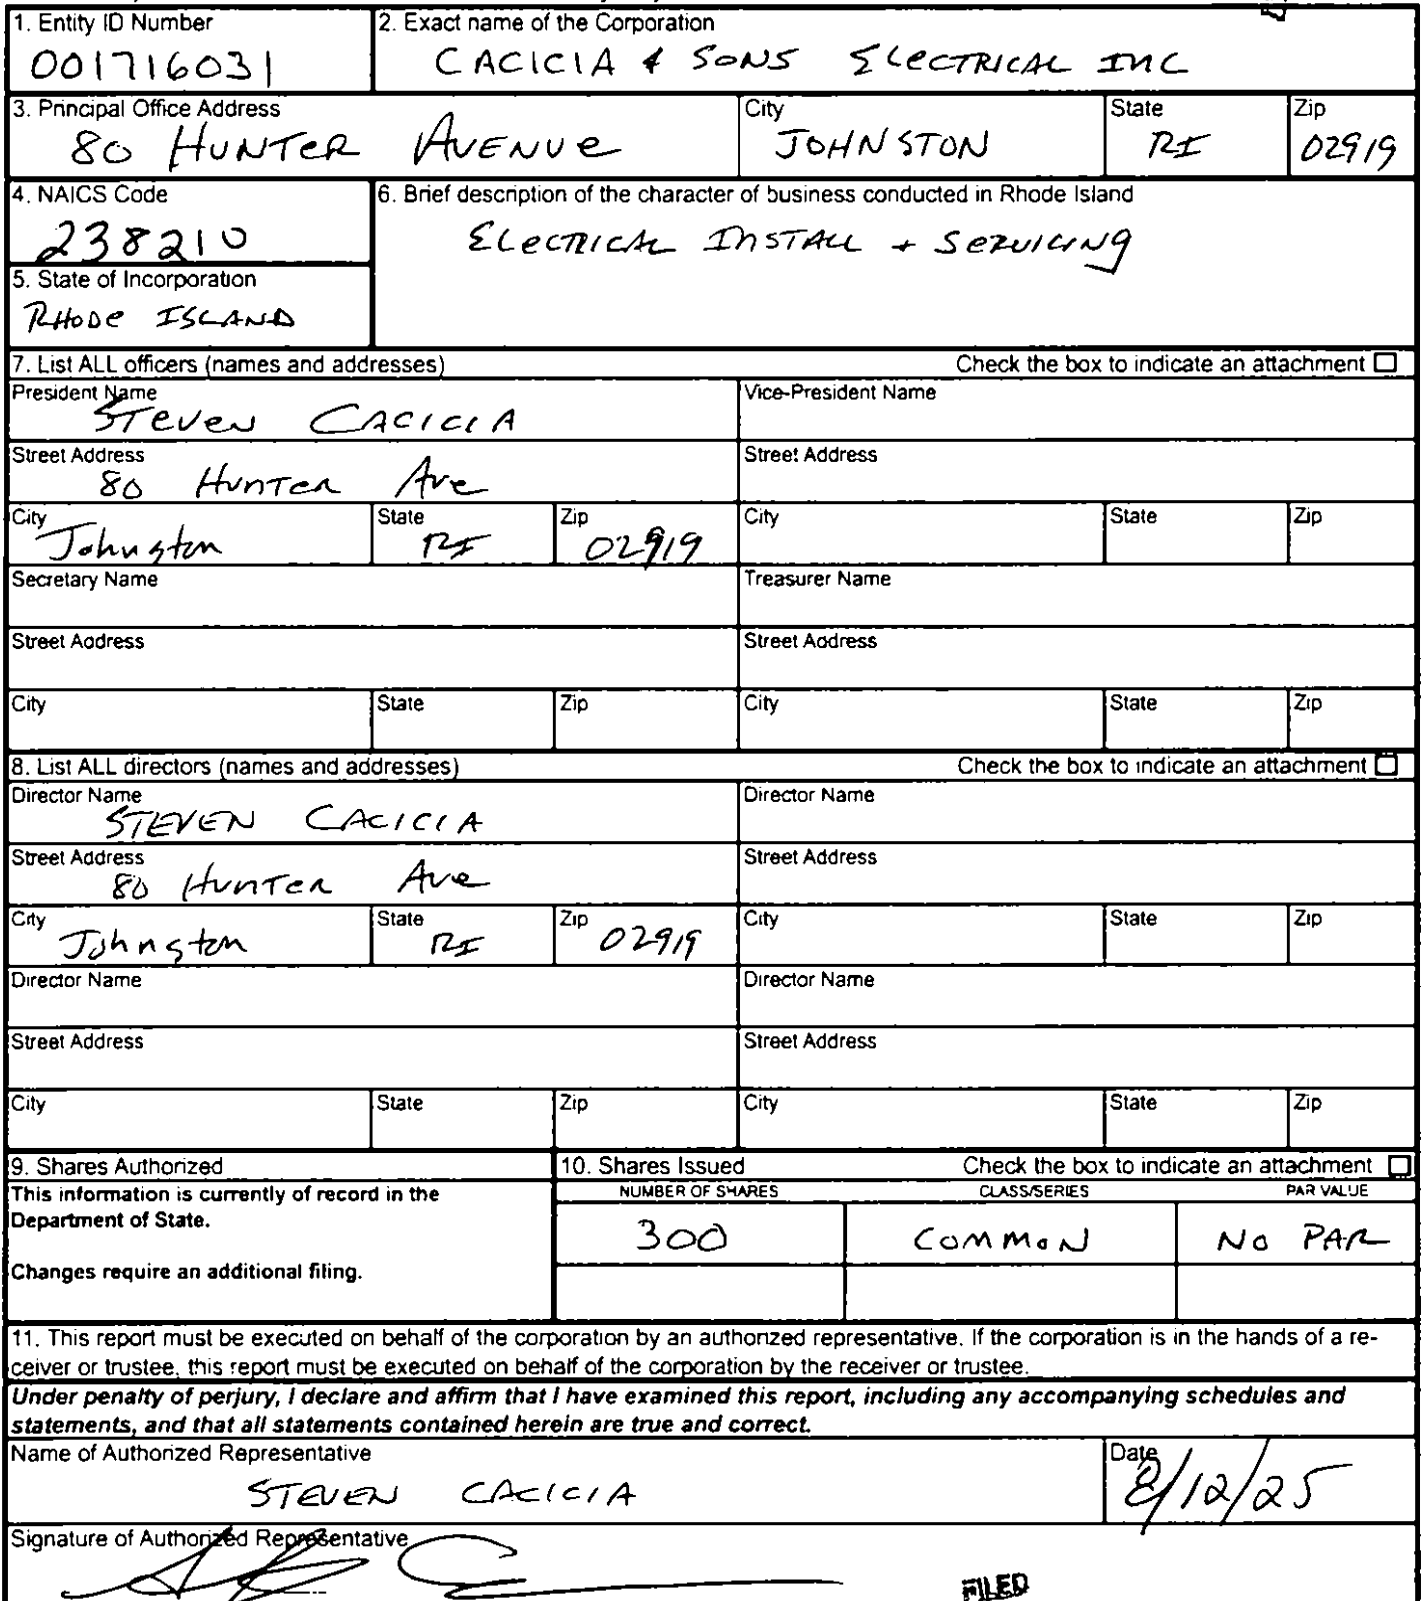 1. Entity ID Number
001716031
2. Exact name of the Corporation
CACICIA & SONS ELECTRICAL INC
3. Principal Office Address
80 HUNTER AVENUE
City
JOHNSTON
State
RI
Zip
02919
4. NAICS Code
238210
5. State of Incorporation
RHODE ISLAND
6. Brief description of the character of business conducted in Rhode Island
ELECTRICAL INSTALL + SERVICING
7. List ALL officers (names and addresses)
Check the box to indicate an attachment
President Name
STEVEN CACICIA
Vice-President Name
Street Address
80 HUNTER Ave
Street Address
City
Johnston
State
RI
Zip
02919
City
State
Zip
Secretary Name
Treasurer Name
Street Address
Street Address
City
State
Zip
City
State
Zip
8. List ALL directors (names and addresses)
Check the box to indicate an attachment
Director Name
STEVEN CACICIA
Director Name
Street Address
80 HUNTER Ave
Street Address
City
Johnston
State
RI
Zip
02919
City
State
Zip
Director Name
Director Name
Street Address
Street Address
City
State
Zip
City
State
Zip
9. Shares Authorized
This information is currently of record in the
Department of State.
Changes require an additional filing.
10. Shares Issued
Check the box to indicate an attachment
NUMBER OF SHARES
CLASS/SERIES
PAR VALUE
300
COMMON
NO PAR
11. This report must be executed on behalf of the corporation by an authorized representative. If the corporation is in the hands of a re-
ceiver or trustee, this report must be executed on behalf of the corporation by the receiver or trustee.
Under penalty of perjury, I declare and affirm that I have examined this report, including any accompanying schedules and
statements, and that all statements contained herein are true and correct.
Name of Authorized Representative
STEVEN CACICIA
Date
8/12/25
Signature of Authorized Representative
FILED